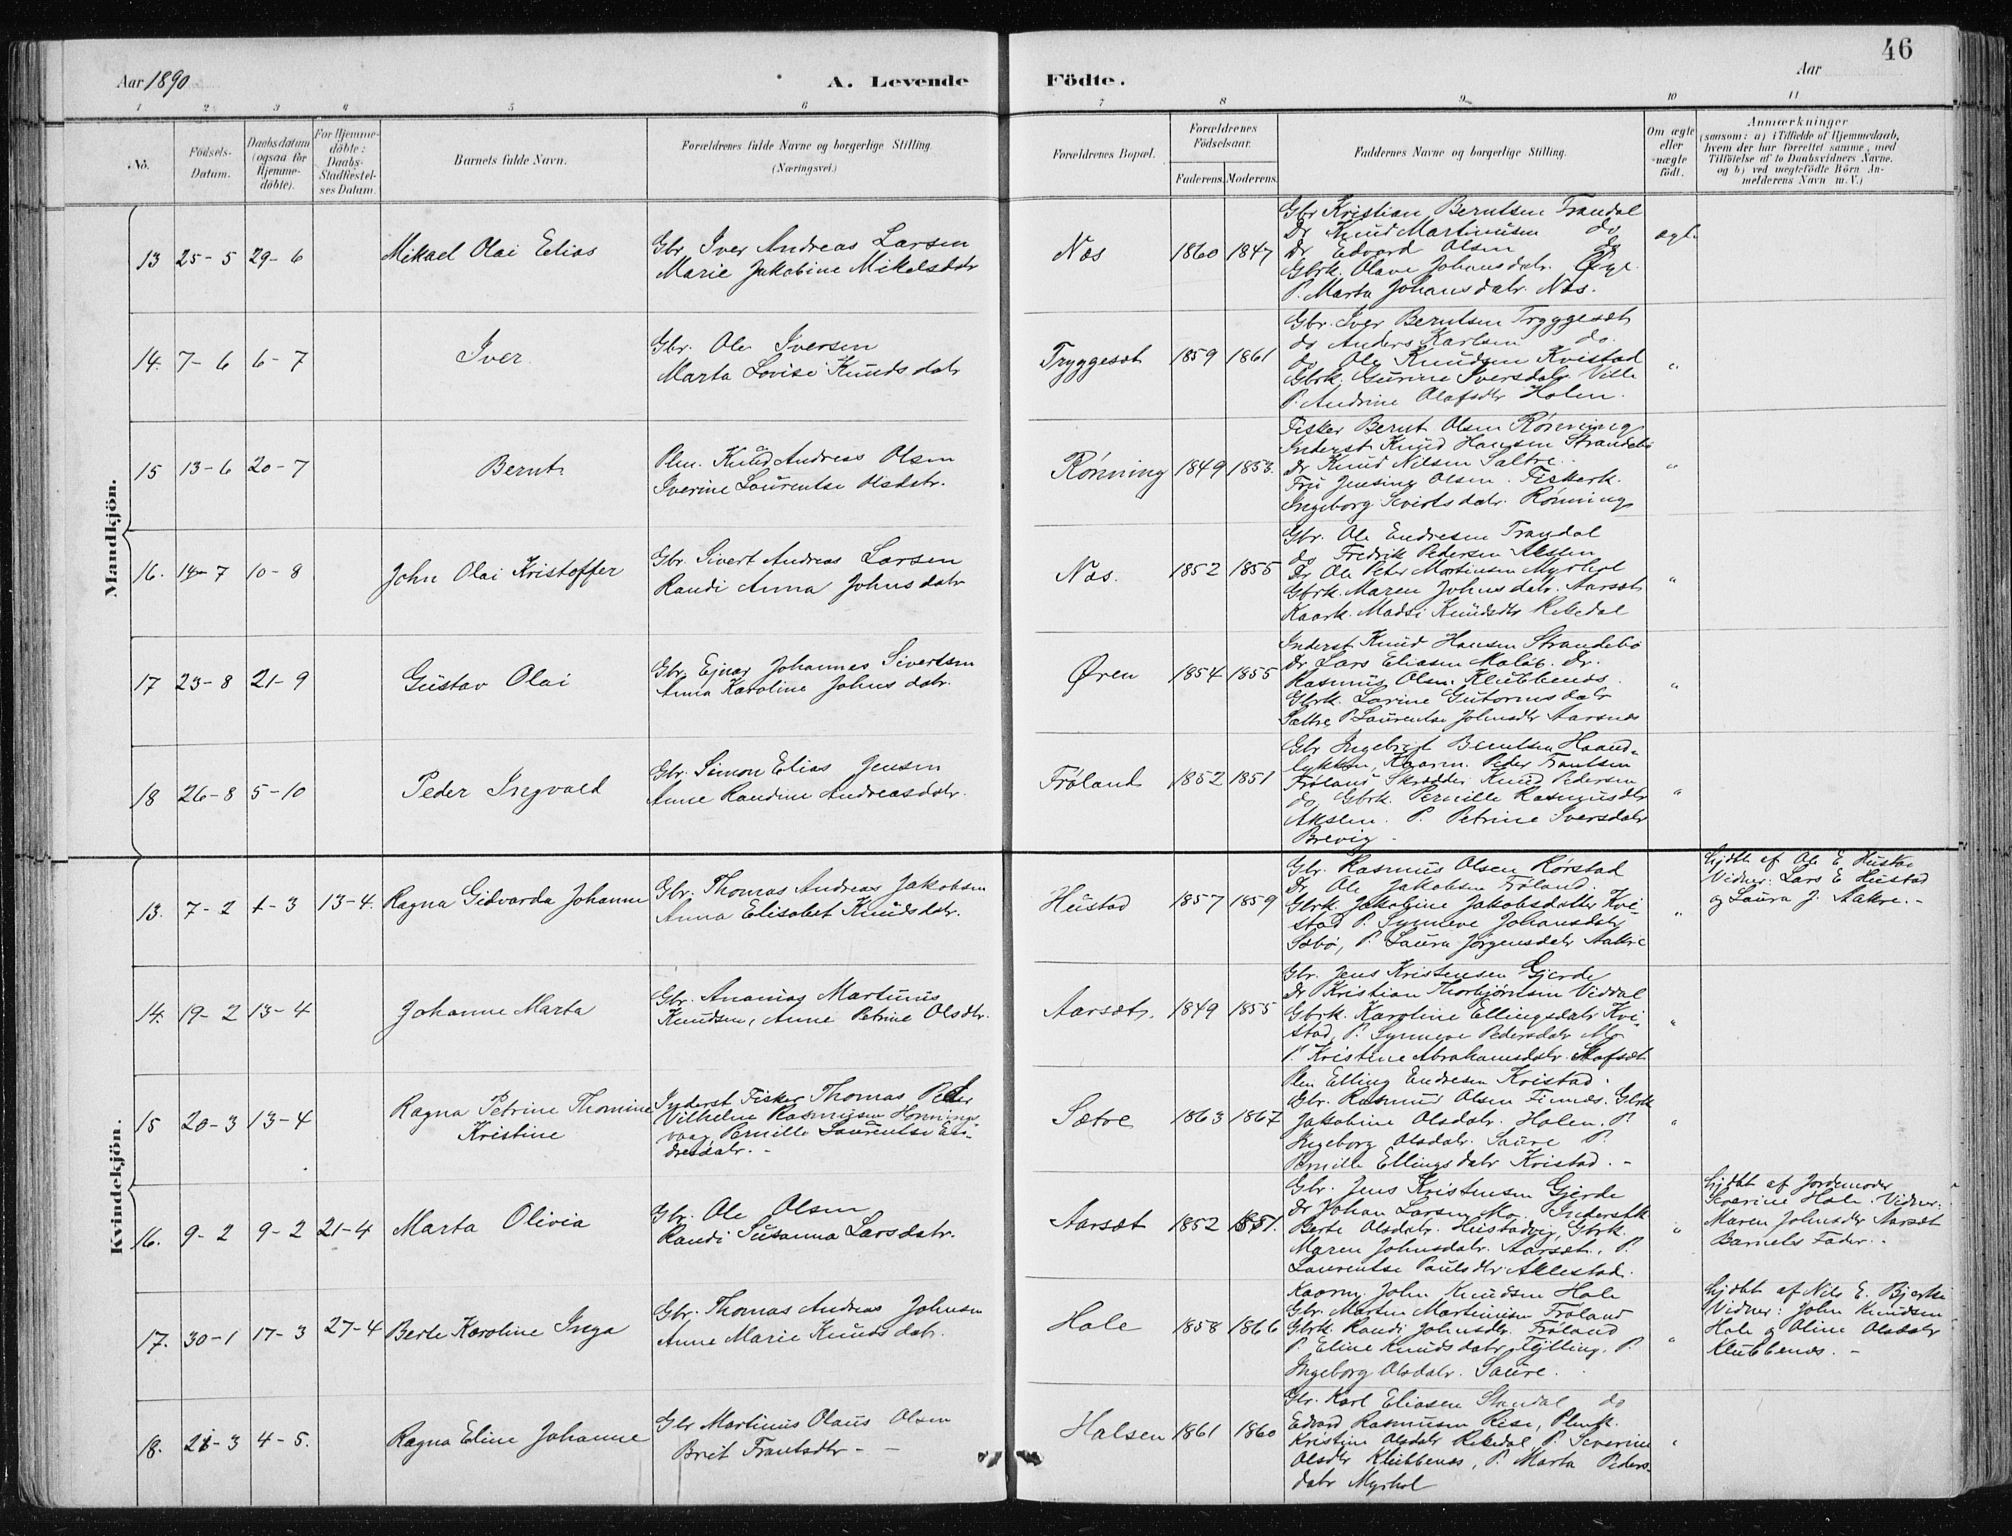 46
Aar 1890
A. Levende Födte.
Aar
1 2 3 4 5 6 7 8 9 10 11
No.
Födsels-Datum.
Daabsdatum (ogsaa for Hjemme-döbte).
For Hjemme-döbte: Daabs-Stadfæstel-ses Datum.
Barnets fulde Navn.
Forældrenes fulde Navne og borgerlige Stilling. (Næringsvei.)
Forældrenes Bopæl.
Forældrenes Födselsaar.
Faderens. Moderens.
Faddernes Navne og borgerlige Stilling.
Om ægte eller uægte födt.
Anmærkninger
(saasom: a) i Tilfælde af Hjemmedaab,
hvem der har forrettet samme, med
Tilföielse af to Daabsvidners Navne.
og b) ved uegtefödte Börn An-
melderens Navn m. V.)
Mandkjön.
13 25-5 29-6 Mikael Olai Elias
Gbr. Iver Andreas Larsen
Marie Jakobine Mikelsdatr
Næs 1860 1847
Gbr Kristian Berntsen Trandal
Dr Knud Martinusen do
Dr Edvard Olsen do
Gbrk. Olave Johansdatr. Øye
P. Marta Johansdatr. Næs.
ægt.
14. 7-6 6-7 Iver.
Gbr. Ole Iversen
Marta Lovise Knudsdatr
Tryggeset 1859 1861
Gbr. Iver Berntsen Tryggeset
do Anders Karlsen do.
do Ole Knudsen Kvistad
Gbrk. Gurine Iversdatr Ville
P. Andrine Olafsdtr Holen.
"
15 13-6 20-7 Bernt
Plm. Knud Andreas Olsen
Iverine Laurentse Olsdatr.
Rønning 1849 1853.
Fisker Bernt Olsen Rønning
Inderst Knud Hansen Strandebø
Dr Knud Nilsen Sætre.
Fru Jensine Olsen. Fiskerk.
Ingeborg Sivertsdatr. Rønning
"
16. 14-7 10-8 John Olai Kristoffer
Gbr. Sivert Andreas Larsen
Randi Anna Johnsdatr
Næs. 1852 1855
Gbr. Ole Endresen Trandal
do Fredrik Pedersen Akslen
Dr Ole Peter Martinsen Myrhol
Gbrk. Maren Johnsdatr. Aarset
Kaark. Madsi Knudsdtr Rekedal
"
17 23-8 21-9 Gustav Olai
Gbr. Ejnar Johannes Sivertsen
Anna Karoline Johnsdatr.
Øren 1854 1855
Inderst Knud Hansen Strandebø
Dr Lars Eliasen Maløe. Dr.
Rasmus Olsen Klubbenes.
Gbrk. Larine Gutormsdatr
Sætre P. Laurentse Johnsdtr Aarsnes
"
18 26-8 5-10 Peder Ingvald
Gbr. Simon Elias Jensen
Anne Randine Andreasdatr.
Frøland 1852 1851
Gbr Ingebrigt Berntsen Haand-
lykken, Kaarm. Peder Frantsen
Frøland Skrædder Knud Pedersen
do Gbrk. Pernille Rasmusdtr
Akslen. P. Petrine Iversdatr
Brevig -
"
Kvindekjön.
13. 7-2 1-3 13-4. Ragna Gidvarda Johanne
Gbr. Thomas Andreas Jakobsen
Anna Elisabet Knudsdatr.
Hustad 1857 1859
Gbr. Rasmus Olsen Rørstad
Dr Ole Jakobsen Frøland.
Gbrk. Jakobine Jakobsdatter Kvi-
stad P. Synneve Johansdatr
Sæbø, P. Laura Jörgensdatr Aakre
"
hjdbt af Ole E. Hustad
Vidner: Lars E Hustad
og Laura J. Aakre. -
14. 19-2 13-4 Johanne Marta
Gbr. Ananias Martinus
Knudsen, Anne Petrine Olsdtr.
Aarset. 1849 1855
Gbr. Jens Kristensen Gjerde
Dr Kristian Thorbjørnsen Viddal
Gbrk. Karoline Ellingsdatr Kvi-
stad, P. Synneve Pedersdatr Mo
P. Kristine Abrahamsdatr.
"
15 20-3 13-4 Ragna Petrine Thomine
Kristine
Inderst Fisker Thomas Peter
Vilhelm Rasmusen Honnings-
vaag Pernille Laurentse En-
dresdatr. -
Sætre 1863 1867
Plm Elling Endresen Kvistad.
Gbr. Rasmus Olsen Finnes. Gbrk
Jakobine Olsdatr. Holen. P.
Ingeborg Olsdatr. Saure P.
Pernille Ellingsdatr Kvistad. -
"
16. 9-2 9-2 21-4 Marta Olivia
Gbr. Ole Olsen
Randi Susanna Larsdatr.
Aarset 1852 1851.
Gbr. Jens Kristensen Gjerde
Dr Johan Larsen Mo. Inderstk
Berte Olsdatr. Hustadvig, Gbrk.
Maren Johnsdatr. Aarset, P.
Laurentse Paulsdtr Aklestad.
"
hjdbt af Jordemoder
Severine Hole. Vidner:
Maren Johnsdtr Aarset
Barnets Fader. -
17. 30-1 17-3 27-4 Berte Karoline Inga
Gbr. Thomas Andreas Johnsen
Anne Marie Knudsdatr.
Hole 1858 1866
Kaarm. John Knudsen Hole
Gbr. Morten Martinusen Frøland
Gbrk. Randi Johnsdtr. Frøland
P. Eline Knudsdatr, P.
Ingeborg Olsdatr. Saure.
"
hjdbt af Nils E. Bjerke
Vidner: John Knudsen
Hole og Oline Olsdatr
Klubbenes. -
18. 21-3 4-5. Ragna Eline Johanne
Gbr Martinus Olaus Olsen
Brit Frantsdtr - -
Halsen 1861 1860
Gbr. Karl Eliasen Standal do
Edvard Rasmusen Rise, Plmk.
Kristine Olsdatr Rekedal, P. Severine
Olsdtr Klubbenes, P. Marta Peders-
datr Myrhol
"